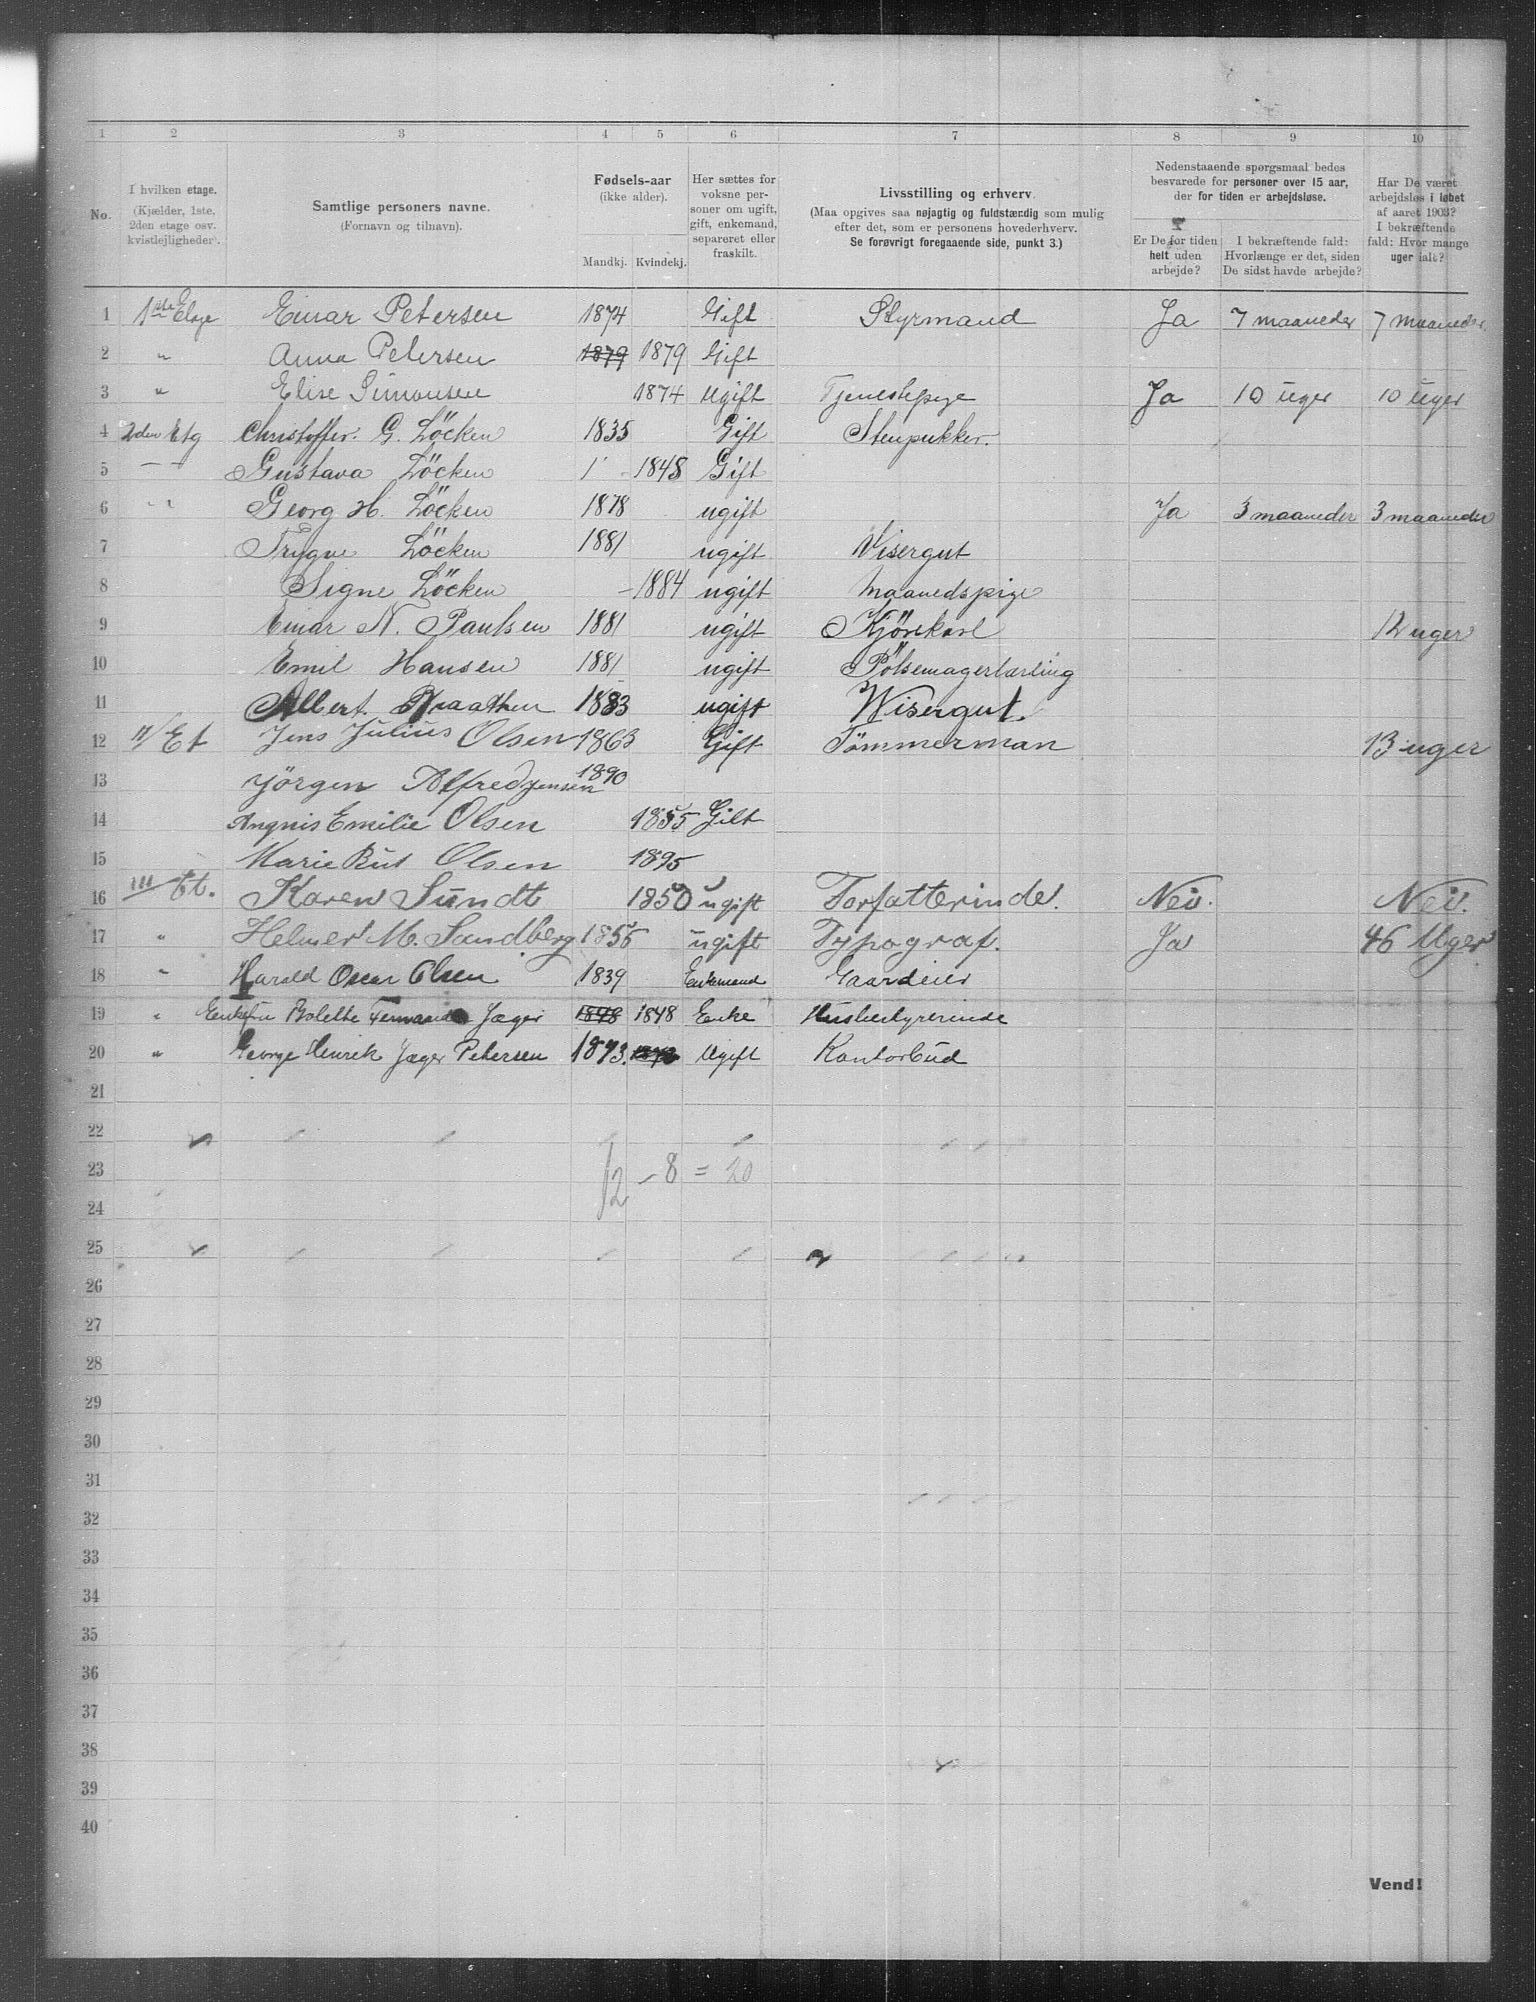 1 2 3 4 5 6 7 8 9 10
No.
I hvilken etage.
(Kjælder, 1ste,
2den etage osv.
kvistlejligheder.
Samtlige personers navne.
(Fornavn og tilnavn).
Fødsels-aar
(ikke alder).
Mandkj. Kvindekj.
Her sættes for
voksne per-
soner om ugift,
gift, enkemand,
separeret eller
fraskilt.
Livsstilling og erhverv.
(Maa opgives saa nøjagtig og fuldstændig som mulig
efter det, som er personens hovederhverv.
Se forøvrigt foregaaende side, punkt 3.)
Nedenstaaende spørgsmaal bedes
besvarede for personer over 15 aar,
der for tiden er arbejdsløse.
Er De for tiden
helt uden
arbejde?
I bekræftende fald:
Hvorlænge er det, siden
De sidst havde arbejde?
Har De været
arbejdsløs i løbet
af aaret 1903?
I bekræftende
fald: Hvor mange
uger ialt?
1 1ste Etage Einar Petersen 1874 Gift Styrmand Ja 7 maaneder 7 maaneder
2 " Anna Petersen 1879 1879 Gift
3 " Elise Simonsen 1874 Ugift Tjenestepige Ja 10 Uger 10 Uger
4 2den Etg Christoffer. G. Löcken 1835 Gift Stenpukker.
5 — " — Gustava Löcken 1848 Gift
6 " Georg H. Löcken 1878 ugift Ja 3 maaneder 3 maaneder
7 Trygve Löcken 1881 ugift Visergut
8 Signe Löcken 1884 ugift Maanedspige
9 Einar N. Paulsen 1881 ugift Kjörekarl 12 uger
10 Emil Hansen 1881 ugift Pölsemagerlærling
11 Albert Braathen 1883 ugift Wisergut.
12 II/ Et Jens Julius Olsen 1863 Gift Tömmerman 13 uger
13 Jörgen Alfred Jensen 1890
14 Angnis Emilie Olsen 1855 Gilt
15 Marie Olsen 1895
16 III Et. Karen Sundt 1850 ugift Forfatterinde. Nei. Nei.
17 " Helmer M. Sandberg 1855 ugift Typograf. Ja 46 Uger
18 " Harald Oscar Olsen 1839 Enkemand Gaardeier
19 " Enkefru Bolette Jæger 1848 1848 Enke Husbestyrerinde
20 " George Henrik Jæger Petersen 1873. 1873 Ugift Kontorbud
21
22
23 12 - 8 = 20
24
25
26
27
28
29
30
31
32
33
34
35
36
37
38
39
40
Vend!